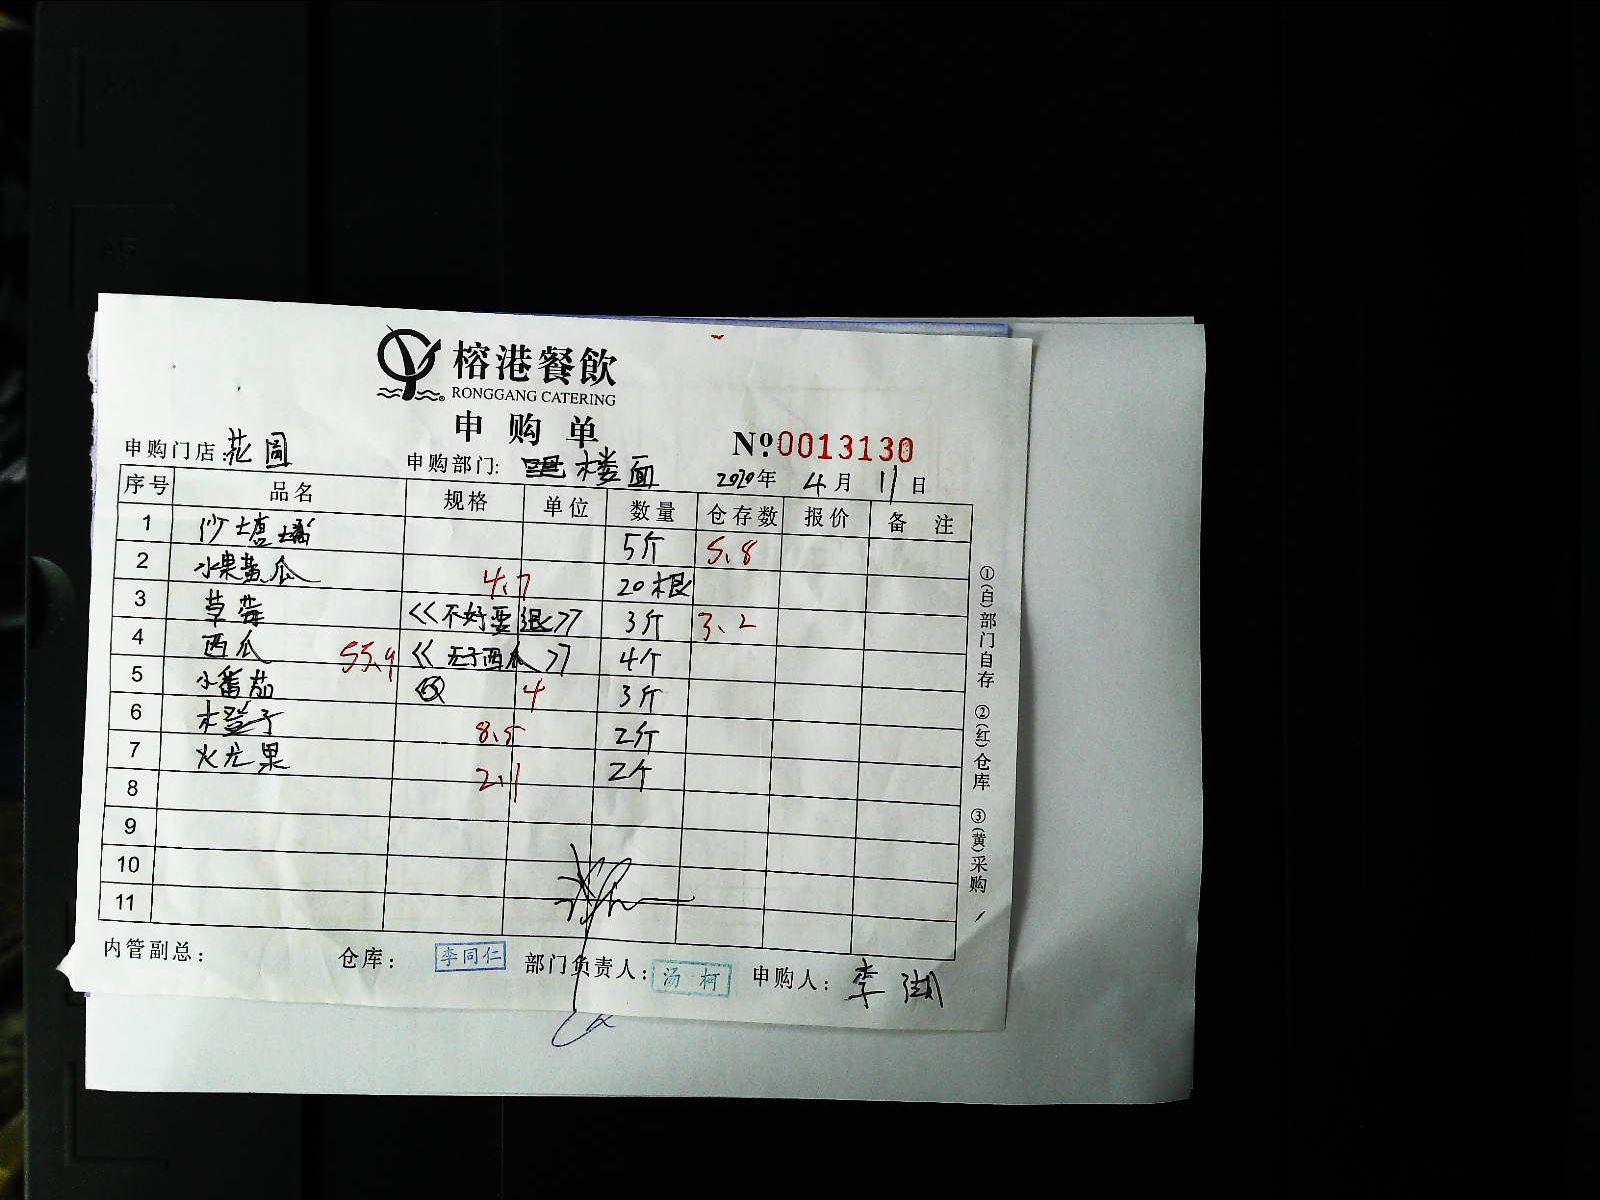 榕港餐飲
RONGGANG CATERING
申购单
№:0013130
申购门店:花园 申购部门: 楼面 2020年 4月 11日
序号 品名 规格 单位 数量 仓存数 报价 备注
1 沙塘橘 5斤 5.8
2 水果黄瓜 4.7 20根
3 草莓 <<不好要退>> 3斤 3.2
4 西瓜 55.9 <<无子西瓜>> 4个
5 小番茄 4 3斤
6 橙子 8.5 2斤
7 火龙果 2.1 2个
8
9
10
11
内管副总: 仓库: 李同仁 部门负责人: 汤柯 申购人: 李
①(白)部门自存 ②(红)仓库 ③(黄)采购